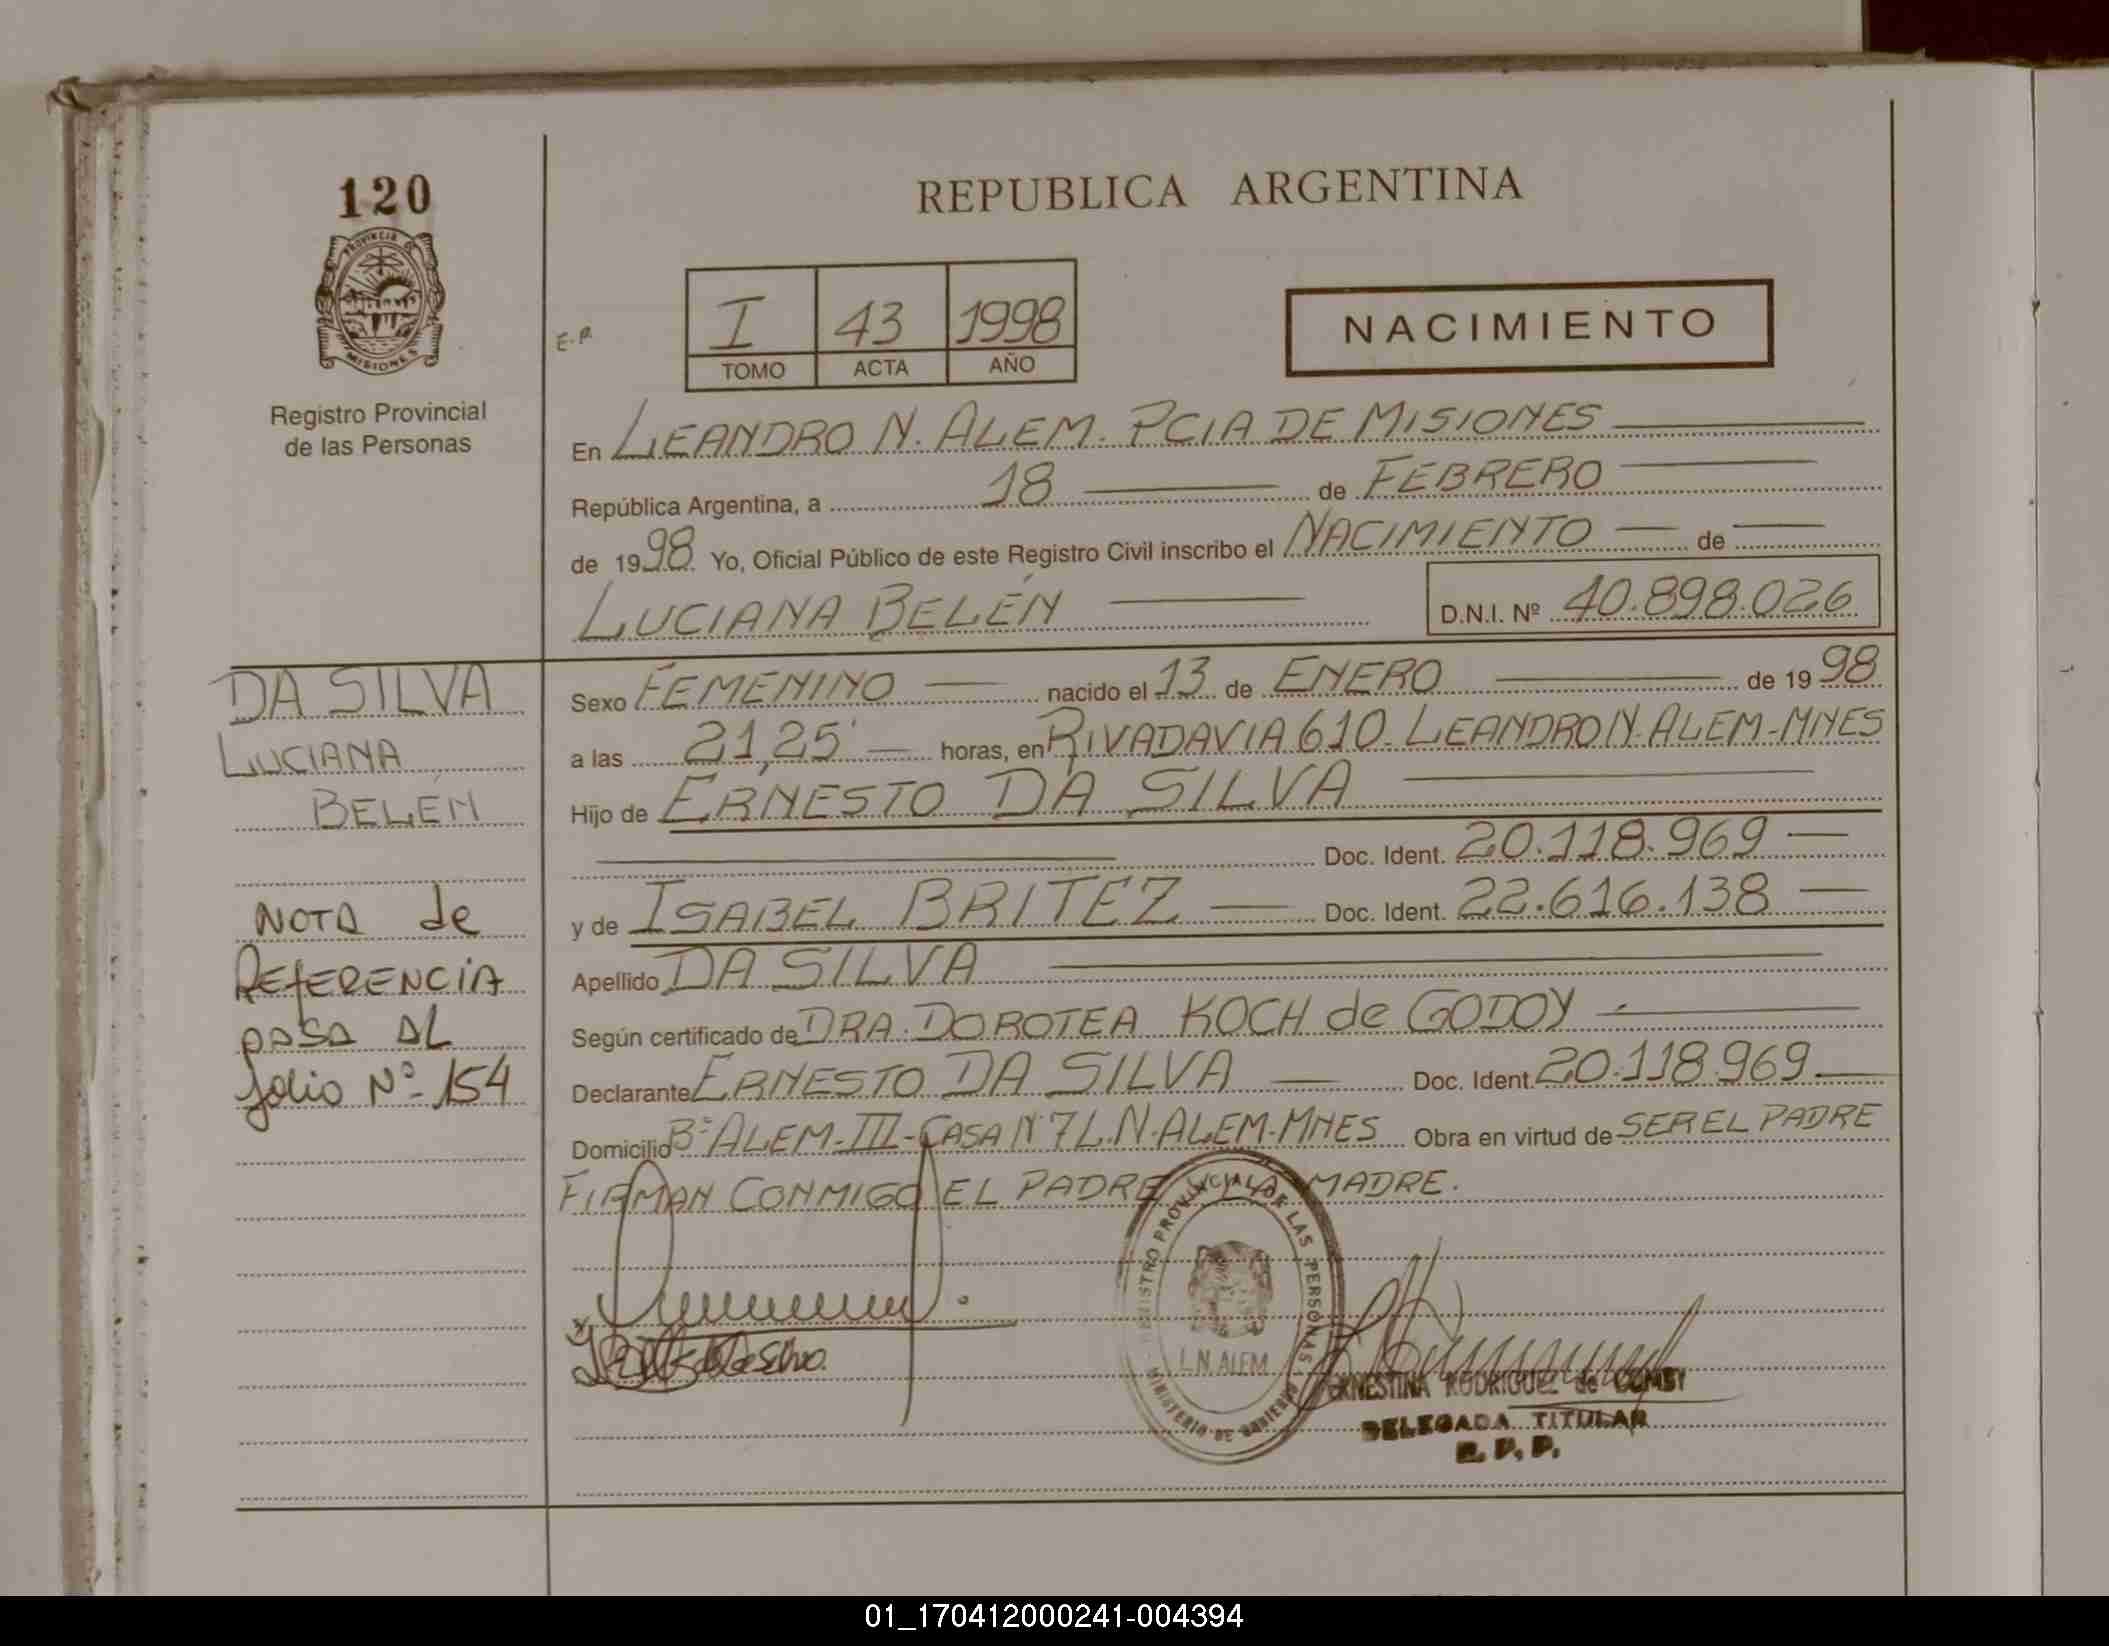 120
PROVINCIA DE
MISIONES
Registro Provincial
de las Personas
REPUBLICA ARGENTINA
E.R
I 43 1998
TOMO ACTA AÑO
NACIMIENTO
En LEANDRO N. ALEM. PCIA DE MISIONES
República Argentina, a 18 de FEBRERO
de 1998. Yo, Oficial Público de este Registro Civil inscribo el NACIMIENTO de
LUCIANA BELÉN
D.N.I. Nº 40.898.026
DA SILVA
LUCIANA
BELÉN
NOTA de
REFERENCIA
PASA AL
folio Nº 154
Sexo FEMENINO nacido el 13 de ENERO de 1998
a las 21,25' horas, en RIVADAVIA 610. LEANDRO N. ALEM-MNES
Hijo de ERNESTO DA SILVA
Doc. Ident. 20.118.969
y de ISABEL BRITEZ Doc. Ident. 22.616.138
Apellido DA SILVA
Según certificado de DRA. DOROTEA KOCH de GODOY
Declarante ERNESTO DA SILVA Doc. Ident. 20.118.969
Domicilio Bº ALEM-III-CASA Nº 7 L.N. ALEM-MNES Obra en virtud de SER EL PADRE
FIRMAN CONMIGO EL PADRE LA MADRE.
REGISTRO PROVINCIAL DE LAS PERSONAS
MINISTERIO DE GOBIERNO
L.N. ALEM
ERNESTINA RODRIGUEZ de
DELEGADA TITULAR
R. P. P.
01_170412000241-004394